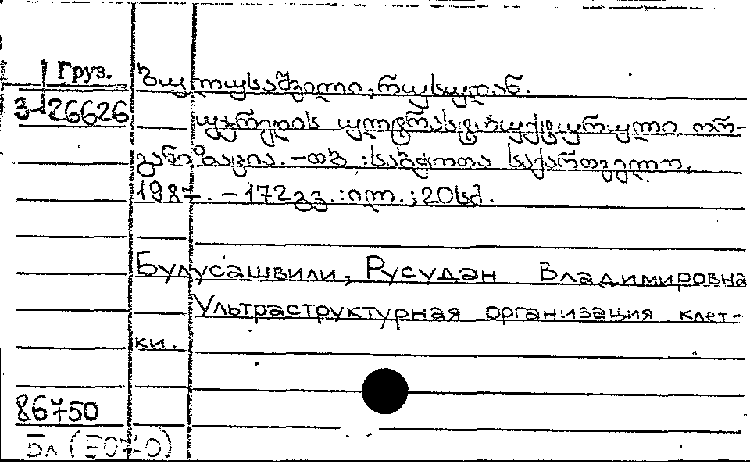 Груз.
3-126626
ბულუსაშვილი, რუსუდან.
უჯრედის ულტრასტრუქტურული ორ-
განიზაცია. - თბ. : საბჭოთა საქართველო,
1987. - 172 გვ. : ილ. ; 20 სმ.
Булусашвили, Русудан Владимировна
Ультраструктурная организация клет-
ки.
86750